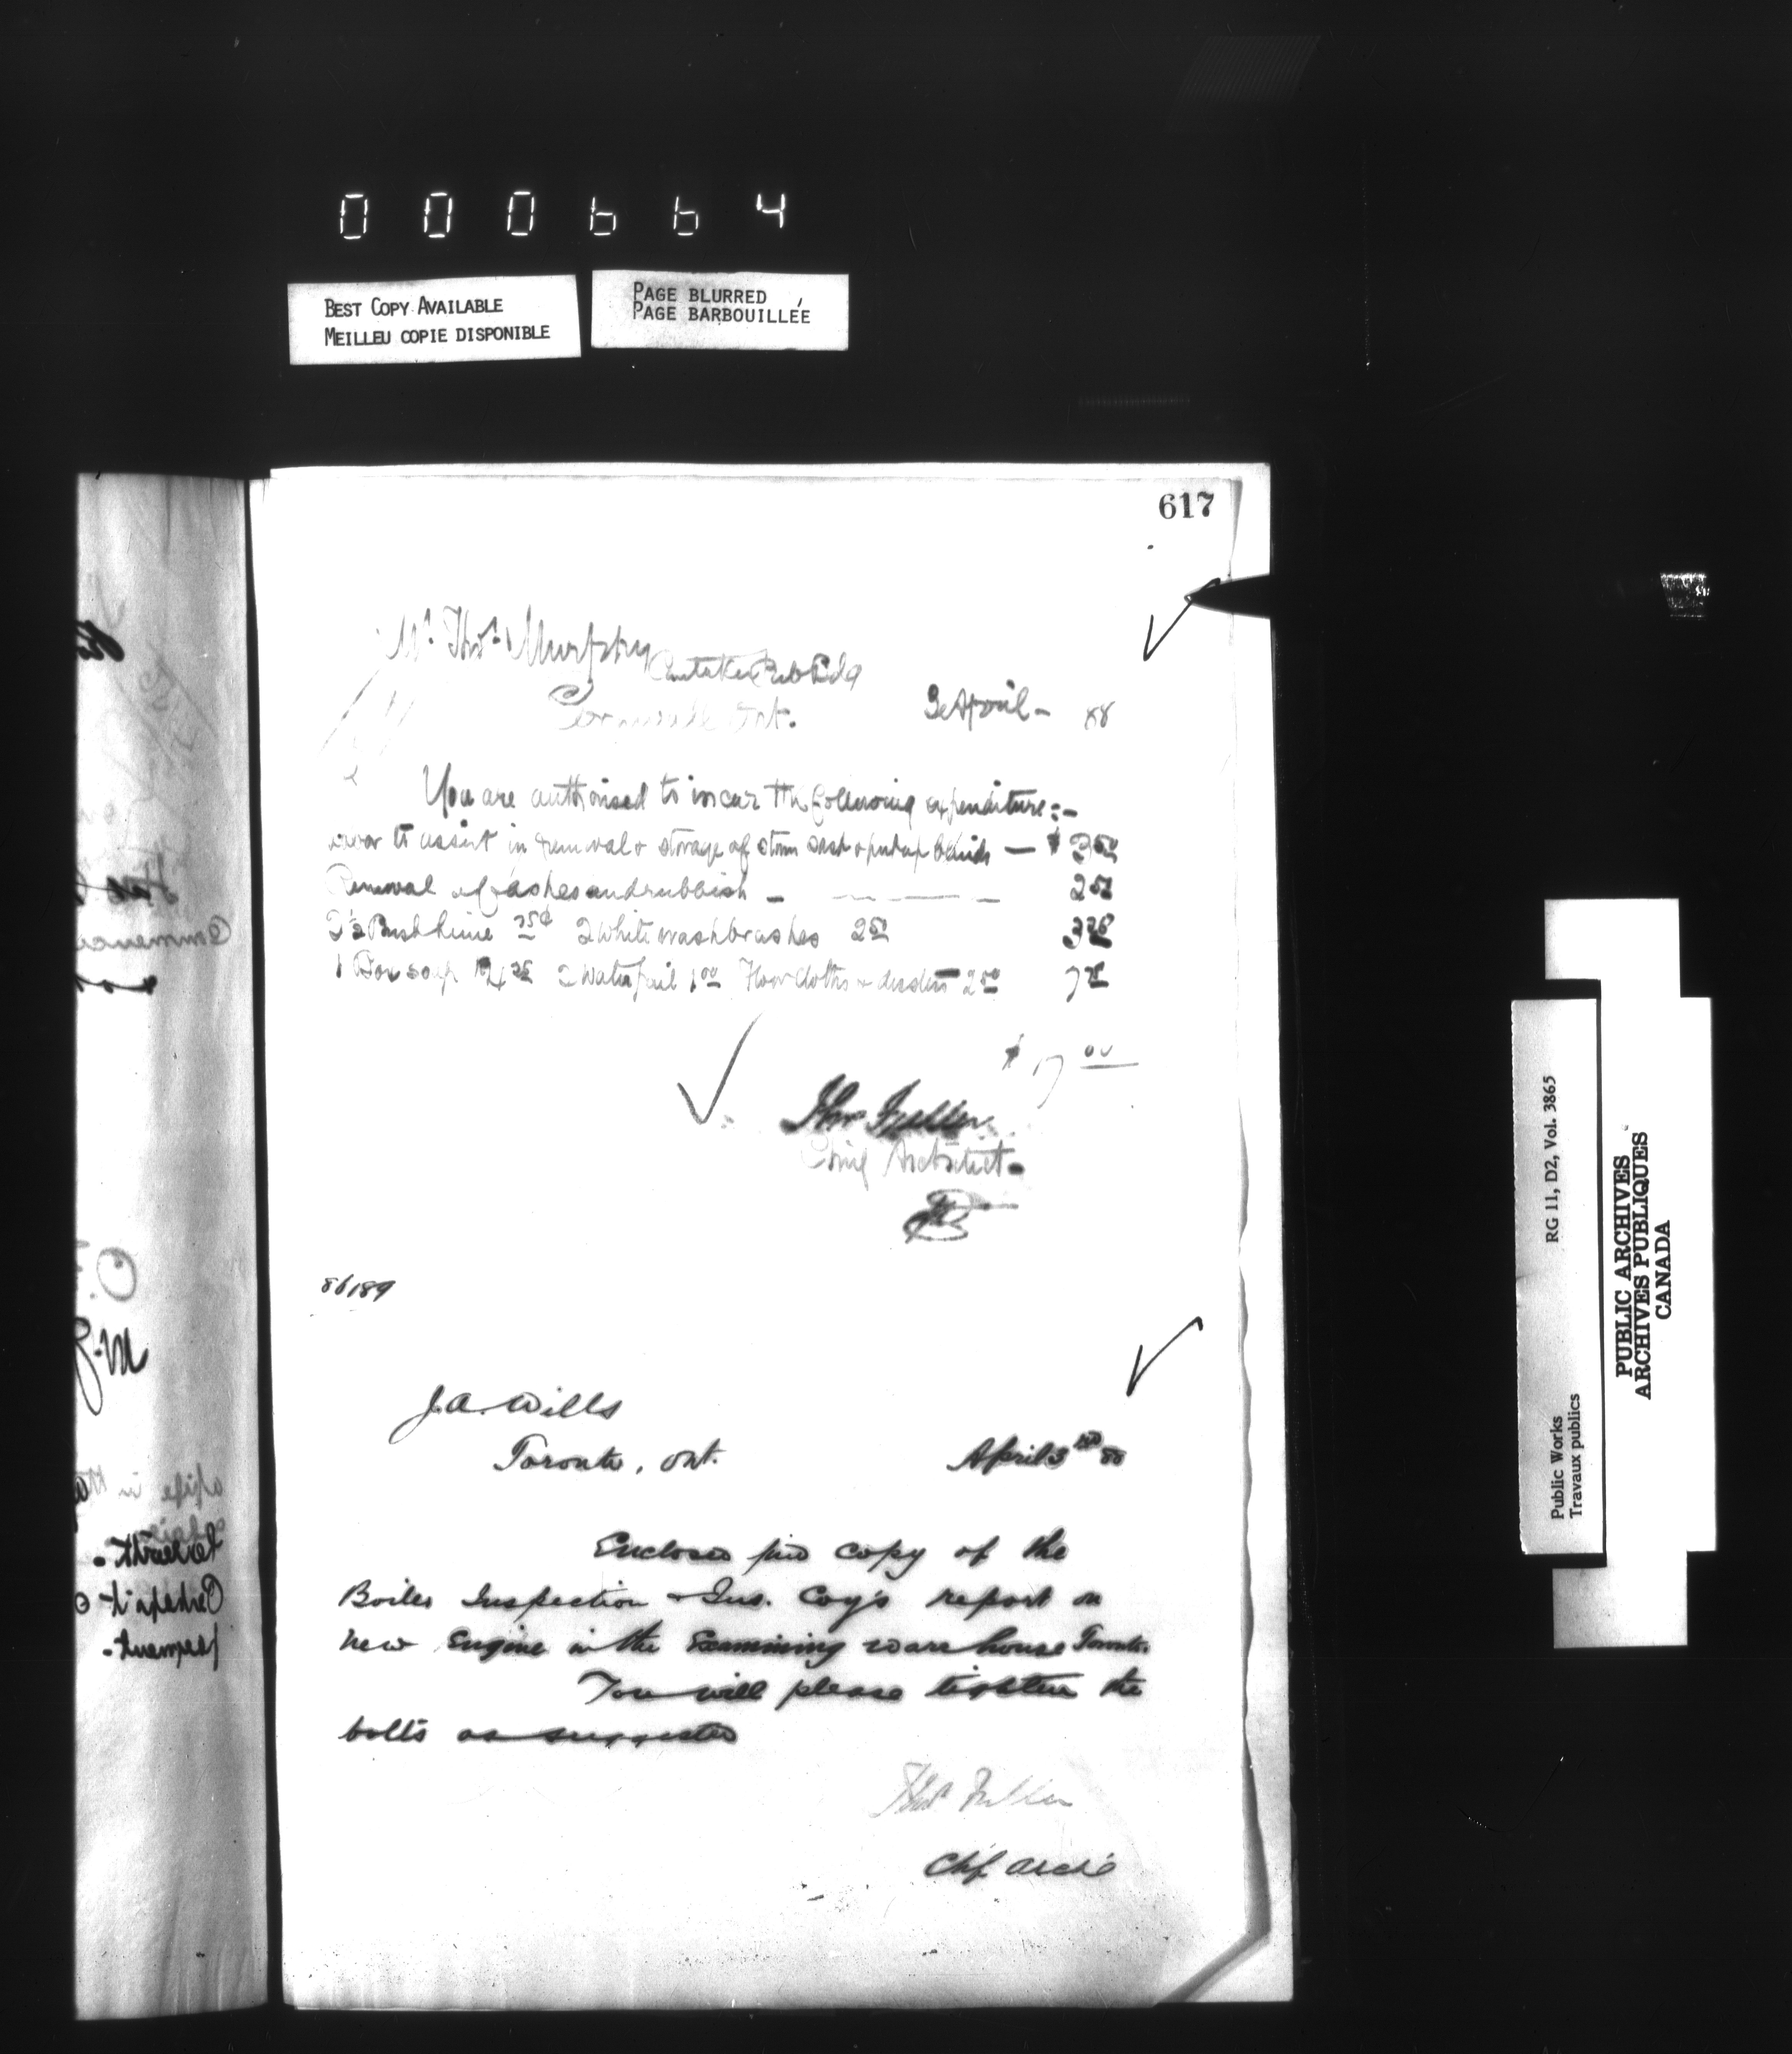 000664
BEST COPY AVAILABLE
MEILLEU COPIE DISPONIBLE
PAGE BLURRED
PAGE BARBOUILLÉE
617
Mr. Thos. Murphy Caretaker Pub Bldg
Cornwall Ont.
3 April - 88
You are authorised to incur the following expenditure:-
to assist in removal & storage of storm sash & put up blinds — $ 3.50
Removal of ashes and rubbish - 2.50
2 White wash brashes 2.50 3.75
1 Box soap 4.25 2 Water pail 1.00 Floor cloths & dusters - 2.00 7.25
$ 17.00
Thos Fuller
Chief Architect.
86189
J.A. Wills
Toronto, Ont.
April 3rd 88
Enclosed find copy of the
Boiler Inspection & Ins. Coy's report on
new Engine in the Examining ware house Toronto.
You will please tighten the
bolts as suggested
Thos Fuller
Chf Arch
Public Works
Travaux publics
RG 11, D2, Vol. 3865
PUBLIC ARCHIVES
ARCHIVES PUBLIQUES
CANADA